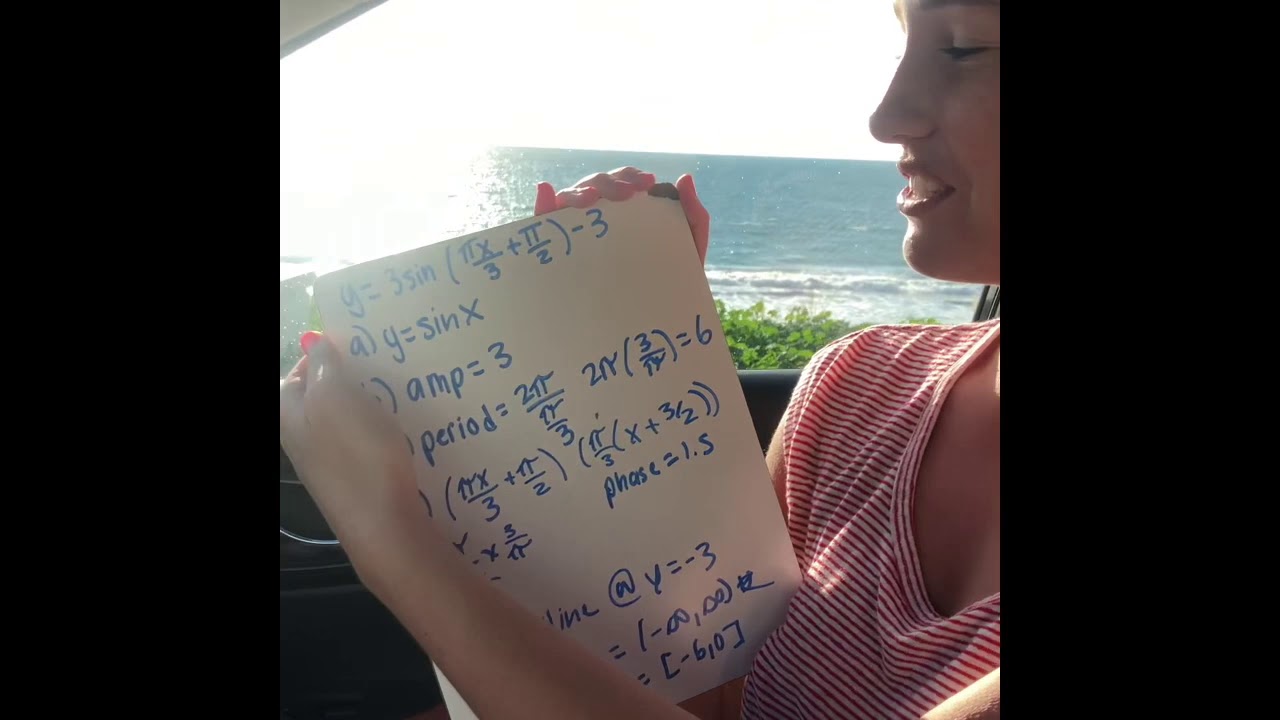 y = 3sin (πx/3 + π/2) - 3
a) y = sin x
) amp = 3
period = 2π / π/3 2π (3/π) = 6
) (πx/3 + π/2) (π/3 (x + 3/2))
phase = 1.5
x 3/π
line @ y = -3
= (-∞, ∞)
= [-6,0]